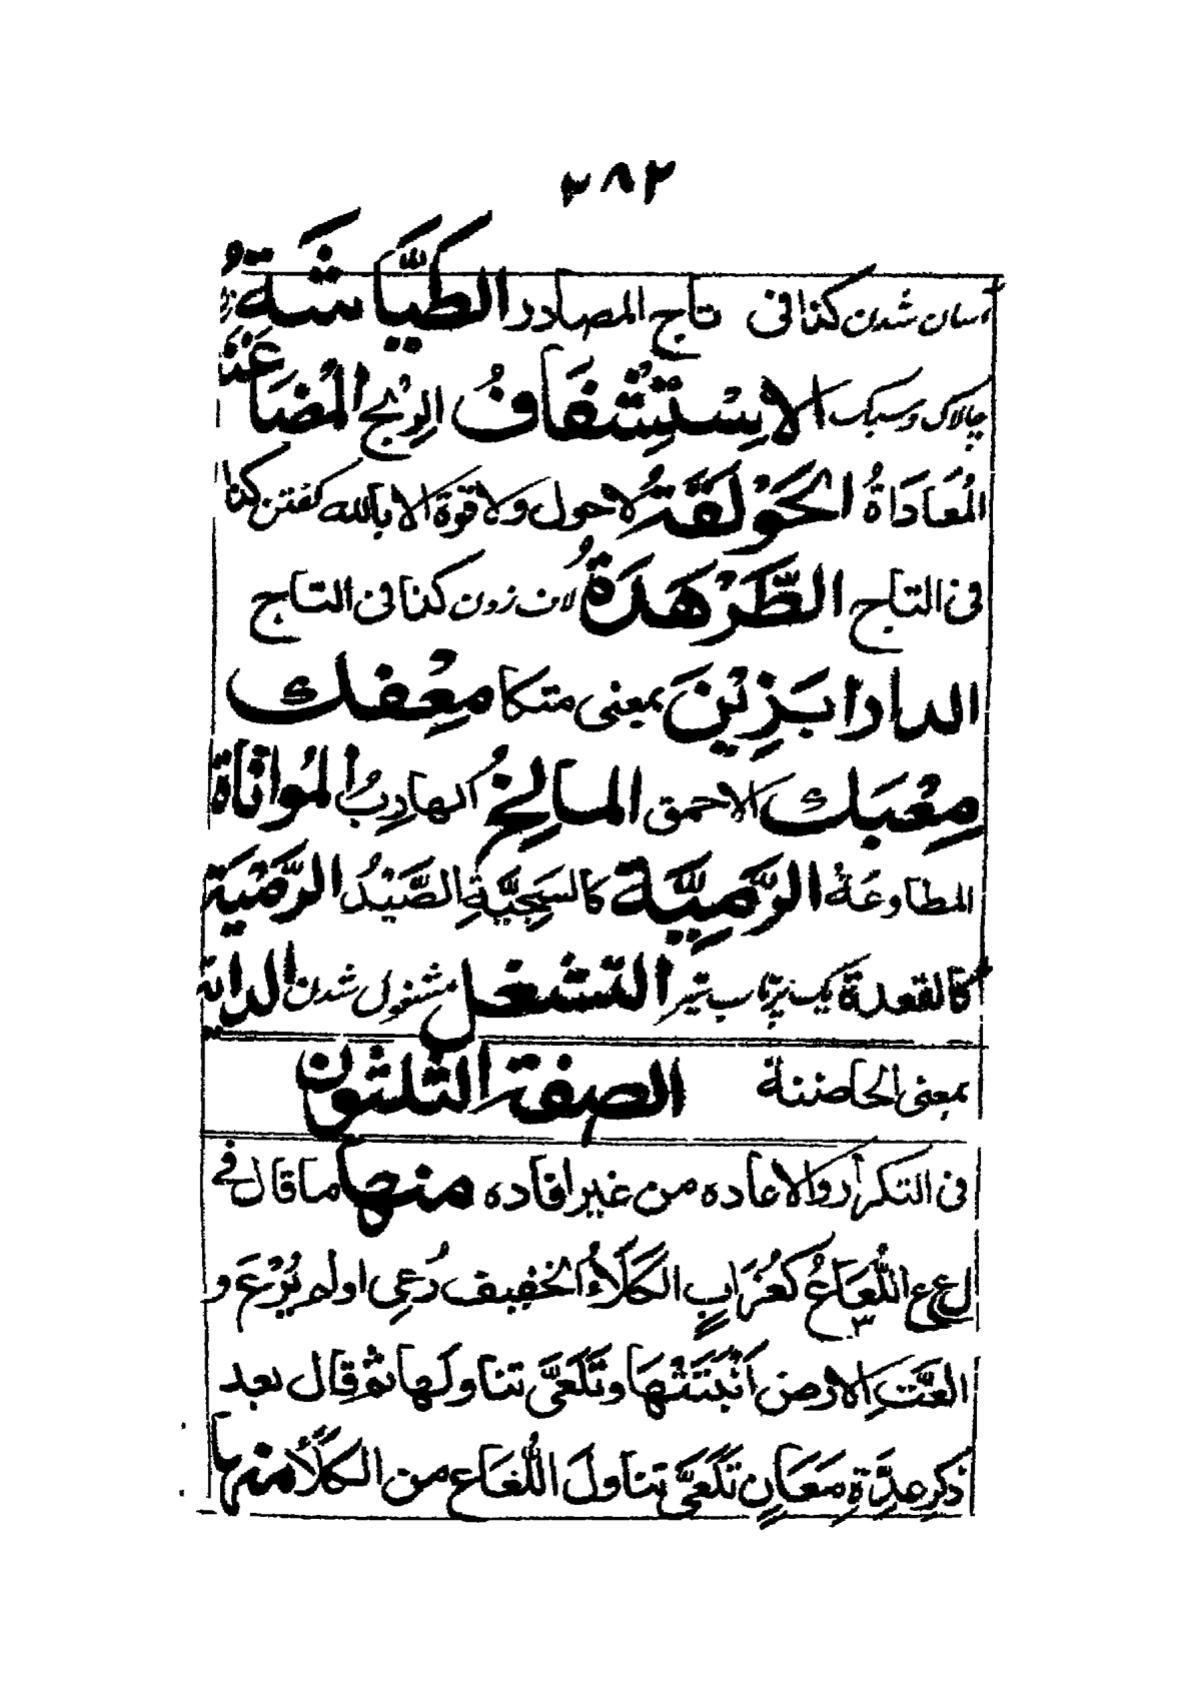 ٣٨٢
آسان شدن كذا فى تاج المصادر الطَّيَّاشَةُ
چالاک وسبک الاِسْتِشْفَافُ الرِبْح المُضَاغَنَة
المُعَادَاةُ الحَوْلَقَةُ لاحول ولا قوة الا بالله گفتن كذا
فى التاج الطَّرْهَدَةُ لاف زدن كذا فى التاج
الدارابَزِيْنَ بمعنى متكا مِعْفك
مِعْبَك الاحمق المالِخُ الهادِبُ المُواتاة
المطاوعَةُ الرَّمِيَّة كالسَجِيَّةِ الصَّيْدُ الرَّمْيَة
كالقعدة یک پرتاب تیر التشغل مشغول شدن الداية
بمعنى الحاضنة الصفة الثلثون
فى التكرار والاعاده من غير افاده منها ما قال فى
ل ع ع اللُّعَاعُ كغُرَابٍ الكَلَأُ الخفيف رُعِى اولم يُرْعَ و
الَعَّتِ الارض اَنْبَتَتْهَا وتَلَعَّى تناولها ثم قال بعد
ذكر عِدَّةِ مَعَانٍ تَلَعَّى تناولَ اللُّعَاع من الكَلَأ منها